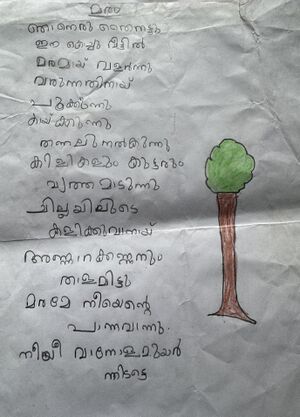 മരം
ഞാനൊരു തൈനട്ടു
ഈ കൊച്ചു വീട്ടിൽ
മരമായ് വളർന്നു
വരുന്നതിനായ്
പൂക്കുന്നു
കായ്ക്കുന്നു
തണലുനൽകുന്നു
കിളികളും കൂട്ടരും
വൃത്തമാടുന്നു
ചില്ലയിലൂടെ
കളിക്കുവാനായ്
അണ്ണാറക്കണ്ണനും
താളമിട്ടു
മരമേ നീയെന്റെ
പ്രാണവാന്നു.
നീയീ വാനോളമുയർ
ന്നിടട്ടെ